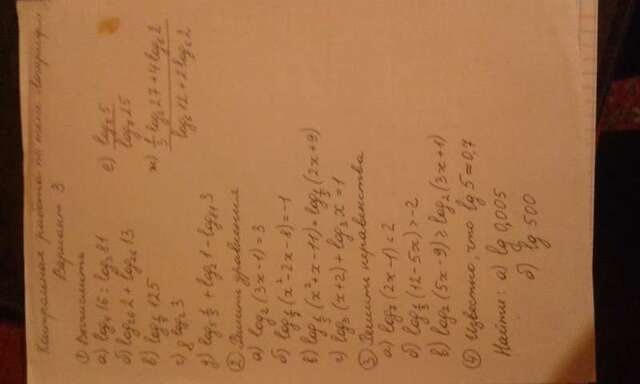 Контрольная работа по теме Логарифмы
Вариант 3
① Вычислить
а) log₄ 16 : log₃ 81
б) log₂₆ 2 + log₂₆ 13
в) log_{1/5} 125
г) 8^{log₂ 3}
д) + log₃ 1 -
е) log₂ 5 / log₂ 25
ж) (1/3 log₂ 27 + 4 log₆ 2) / (log₆ 12 + 2 log₆ 2)
② Решить уравнения
а) log₂ (3x - 1) = 3
б) (x² - 2x - 8) = -1
в) (x² + x - 11) = (2x + 9)
г) log₃ (x + 2) + log₃ x = 1
③ Решить неравенства
а) log₇ (2x - 1) < 2
б) log_{1/3} (12 - 5x) > -2
в) log₂ (5x - 9) ≥ log₂ (3x + 1)
④ Известно, что lg 5 ≈ 0,7
Найти: а) lg 0,005
б) lg 500